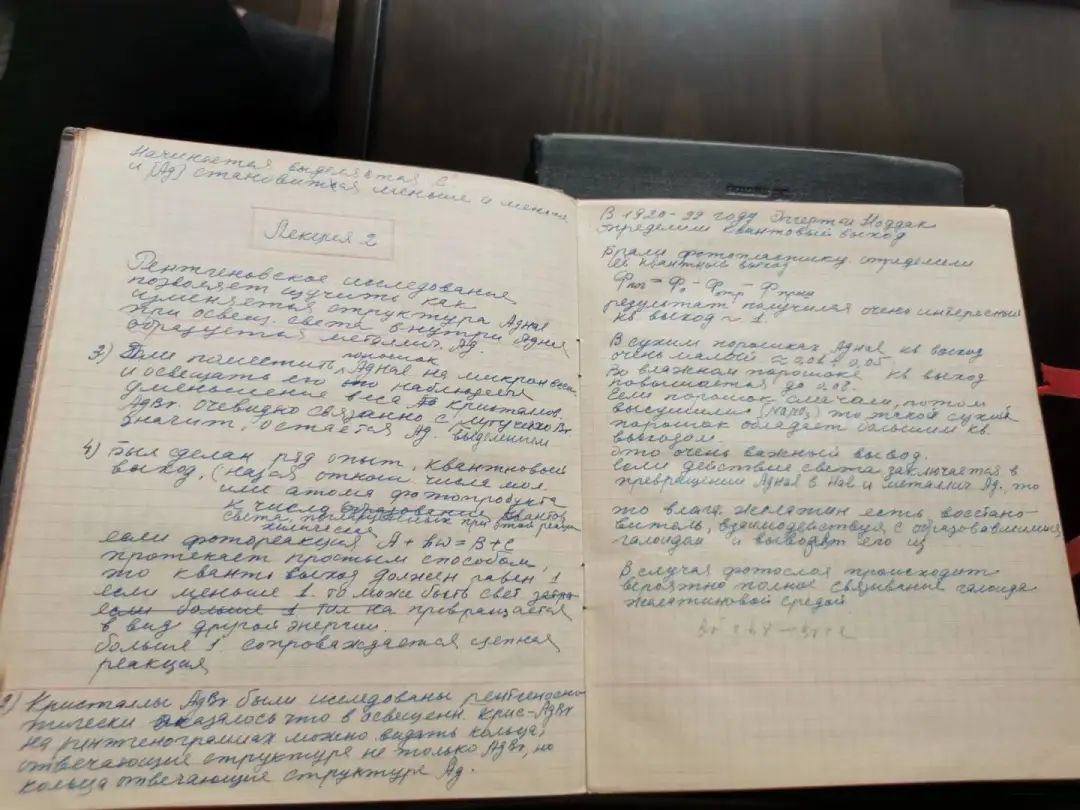 Начинается выделятся
и [Ag] становится меньше и меньше
Лекция 2
Рентгеновское исследование
позволяет изучить как
изменяется структура AgHal
при освещ. света внутри AgHal
образуется металлич. Ag.
3) Если поместить порошок AgHal на микрон весы
и освещать его наблюдается
уменьшение веса кристаллов
AgBr, очевидно связанно с улетучкой Br
значит, остается Ag. выделением
4) Был сделан ряд опыт. квантновой
выход, (назв отнош числа мол.
или атома фотопродукта
к числу квантов
света, поглощенных при этой реак
химической
если фотореакция A + hω = B + C
протекает простым способом,
то квант. выход должен равен 1
если меньше 1. то може быть свет
если больше 1 то на превращается
в вид другой энергии.
больше 1 сопроваждается цепная
реакция
2) Кристаллы AgBr были исследованы рентгеноско
пически оказалось что в освещенн. крис-AgBr
на ринтженограммах можно видать кольца,
отвечающие структуре не только AgBr, но
кольца отвечающие структуре Ag.
В 1920-22 году Эггерт и Ноддак
определили квантовый выход
Брали фотопластинку определили
ее квантный выход
Фпогл = Ф₀ - Фотр - Фпрош
результат получился очень интересный
кв выход ~ 1.
В сухим порошках AgHal кв выход
очень малый ≈ 0,04 ÷ 0,05
Во влажном порошоке кв выход
повышается до
Если порошок смачали, потом
высушили (NaNO₃) то такой сухой
порошок обладает большим кв.
выходом.
это очень важный вывод.
если действие света заключается в
превращении AgHal в Hal и металлич Ag, то
то влаг. желатин есть восстано-
витель, взаимодействуя с образовавшимся
галоидом и выводит его из
В случая фотослоя происходит
вероятно полное связывание галоида
желатиновой средой